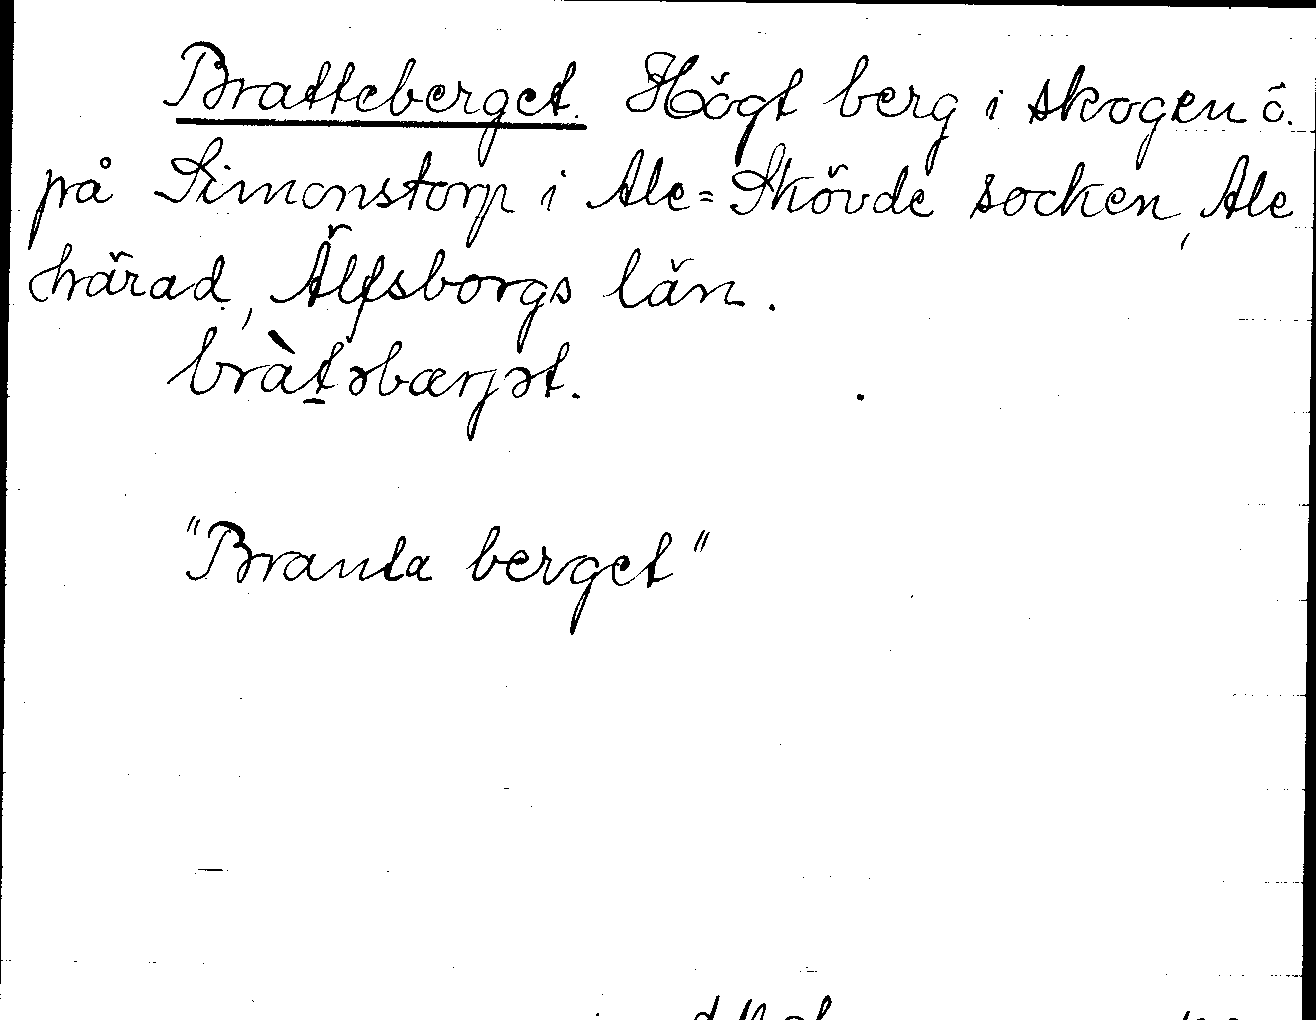 Bratteberget. Högt berg i skogen ö.
på Simonstorp i Ale=Skövde socken, Ale
härad, Älfsborgs län.
bràt̲əbærjət.
"Branta berget"